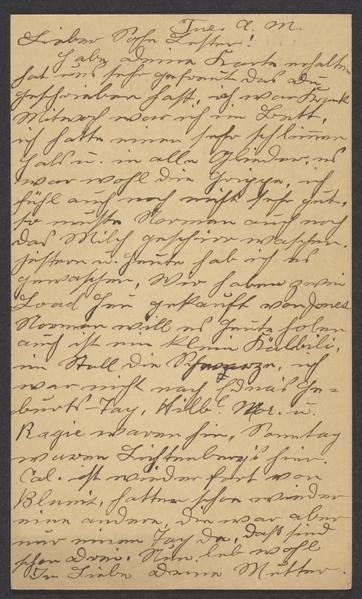 Tue. A. M.
Lieber Sohn Lester!
Habe deine Karte erhalten
hat uns sehr gefreut das du
geschrieben hast, ich war krank
Mitwoch war ich im Bett,
ich hatte einen sehr schlimmen
Hals u. in alle Glieder, es
war wohl die Grippe, ich
fühl auch noch nicht sehr gut,
so musste Norman auch noch
das Milch geschirr waschen.
Gestern u. heute hab ich es
gewaschen, Wir haben zwei
Load Heu gekauft von Jones
Norman will es heute holen
auch ist ein klein Kalbili,
im Stall die Schwarze, ich
war nicht nach Edna's Ge-
burts-Tag, Hilb. Nor. u.
Ragie waren hin, Sonntag
waren Lichtenberg's hier.
Cal. ist wieder fort von
Blunt, hatten schon wieder
eine andere, die war aber
nur einen Tag da, das sind
schon drei. Nun leb wohl
In Liebe deine Mutter.